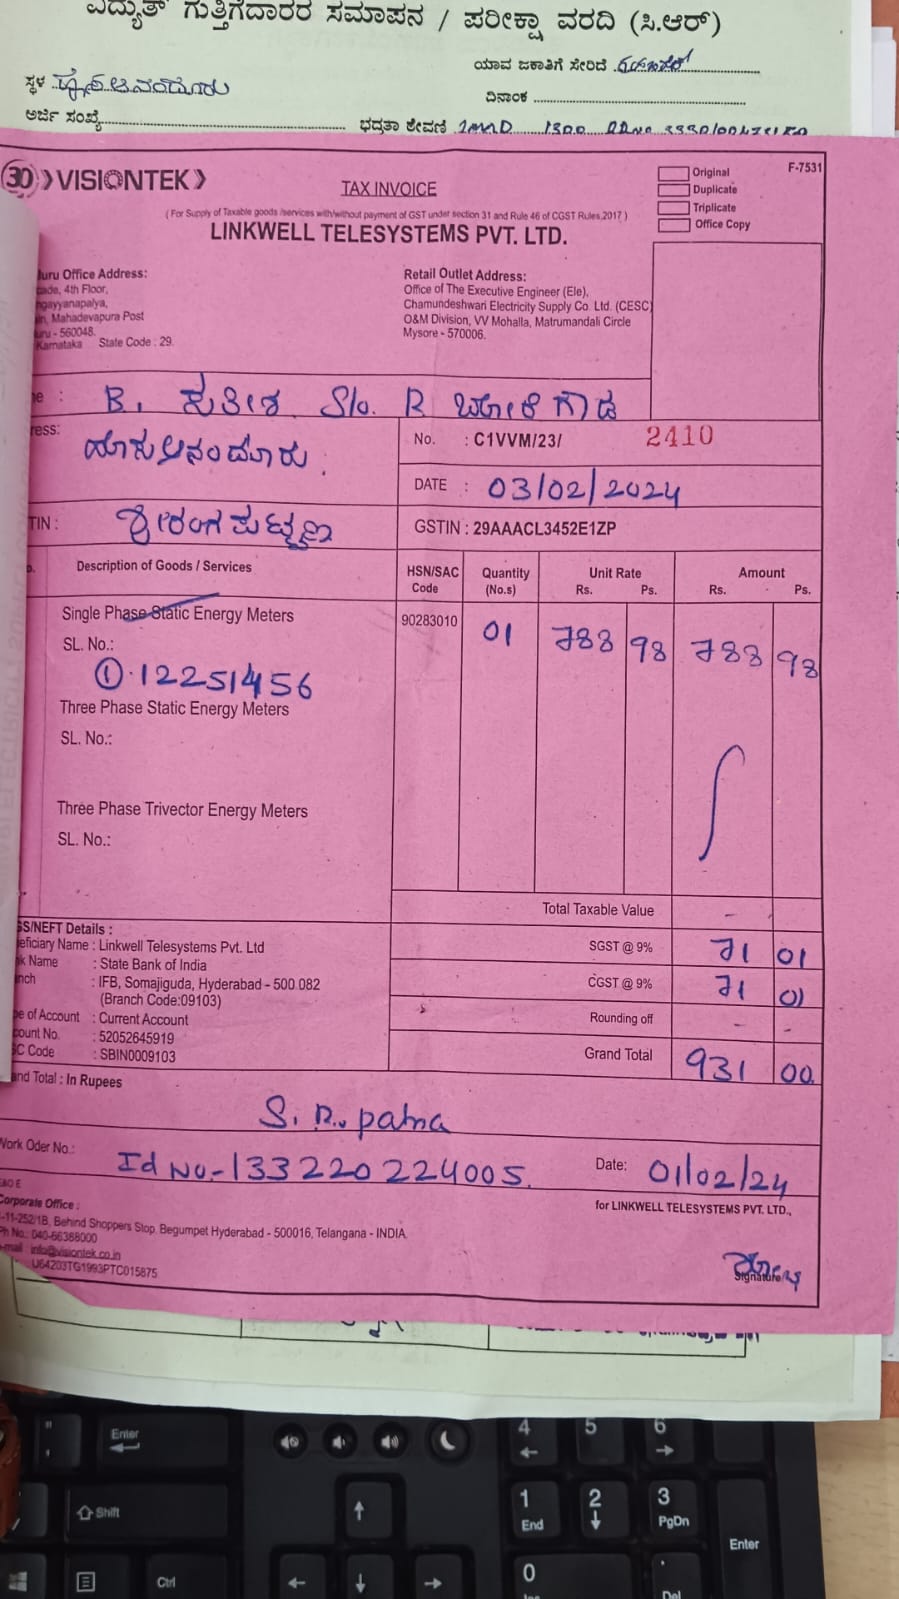 ವಿದ್ಯುತ್ ಗುತ್ತಿಗೆದಾರರ ಸಮಾಪನ / ಪರೀಕ್ಷಾ ವರದಿ (ಸಿ.ಆರ್)
ಯಾವ ಜಕಾತಿಗೆ ಸೇರಿದೆ
ಸ್ಥಳ
ದಿನಾಂಕ
ಅರ್ಜಿ ಸಂಖ್ಯೆ
ಭದ್ರತಾ ಠೇವಣಿ
F-7531
30 VISIONTEK
TAX INVOICE
Original
Duplicate
Triplicate
Office Copy
( For Supply of Taxable goods /services with/without payment of GST under section 31 and Rule 46 of CGST Rules,2017 )
LINKWELL TELESYSTEMS PVT. LTD.
uru Office Address:
cade, 4th Floor,
ngayyanapalya,
in, Mahadevapura Post
uru - 560048.
Karnataka State Code : 29.
Retail Outlet Address:
Office of The Executive Engineer (Ele),
Chamundeshwari Electricity Supply Co. Ltd. (CESC)
O&M Division, VV Mohalla, Matrumandali Circle
Mysore - 570006.
me : B. ಸತೀಶ S/o. R ಬೋರೇಗೌಡ
ress:
No. : C1VVM/23/ 2410
DATE : 03/02/2024
TIN : ಶ್ರೀರಂಗಪಟ್ಟಣ
GSTIN : 29AAACL3452E1ZP
o. Description of Goods / Services HSN/SAC Code Quantity (No.s) Unit Rate Rs. Ps. Amount Rs. Ps.
Single Phase Static Energy Meters 90283010 01 788 98 788 98
SL. No.:
① 12251456
Three Phase Static Energy Meters
SL. No.:
Three Phase Trivector Energy Meters
SL. No.:
Total Taxable Value -
SGST @ 9% 71 01
CGST @ 9% 71 01
Rounding off - -
Grand Total 931 00
GS/NEFT Details :
eficiary Name : Linkwell Telesystems Pvt. Ltd
nk Name : State Bank of India
anch : IFB, Somajiguda, Hyderabad - 500 082
(Branch Code:09103)
pe of Account : Current Account
count No. : 52052645919
SC Code : SBIN0009103
and Total : In Rupees
S. R. patna
Work Oder No.: Id No - 133220224005. Date: 01/02/24
E&O E
Corporate Office :
-11-252/1B, Behind Shoppers Stop, Begumpet Hyderabad - 500016, Telangana - INDIA.
Ph No.: 040-66388000
e-mail : info@visiontek.co.in
U64203TG1993PTC015875
for LINKWELL TELESYSTEMS PVT. LTD.,
Signature
Enter
4
5
6
Shift
1
End
2
3
PgDn
Enter
Ctrl
0
Ins
.
Del